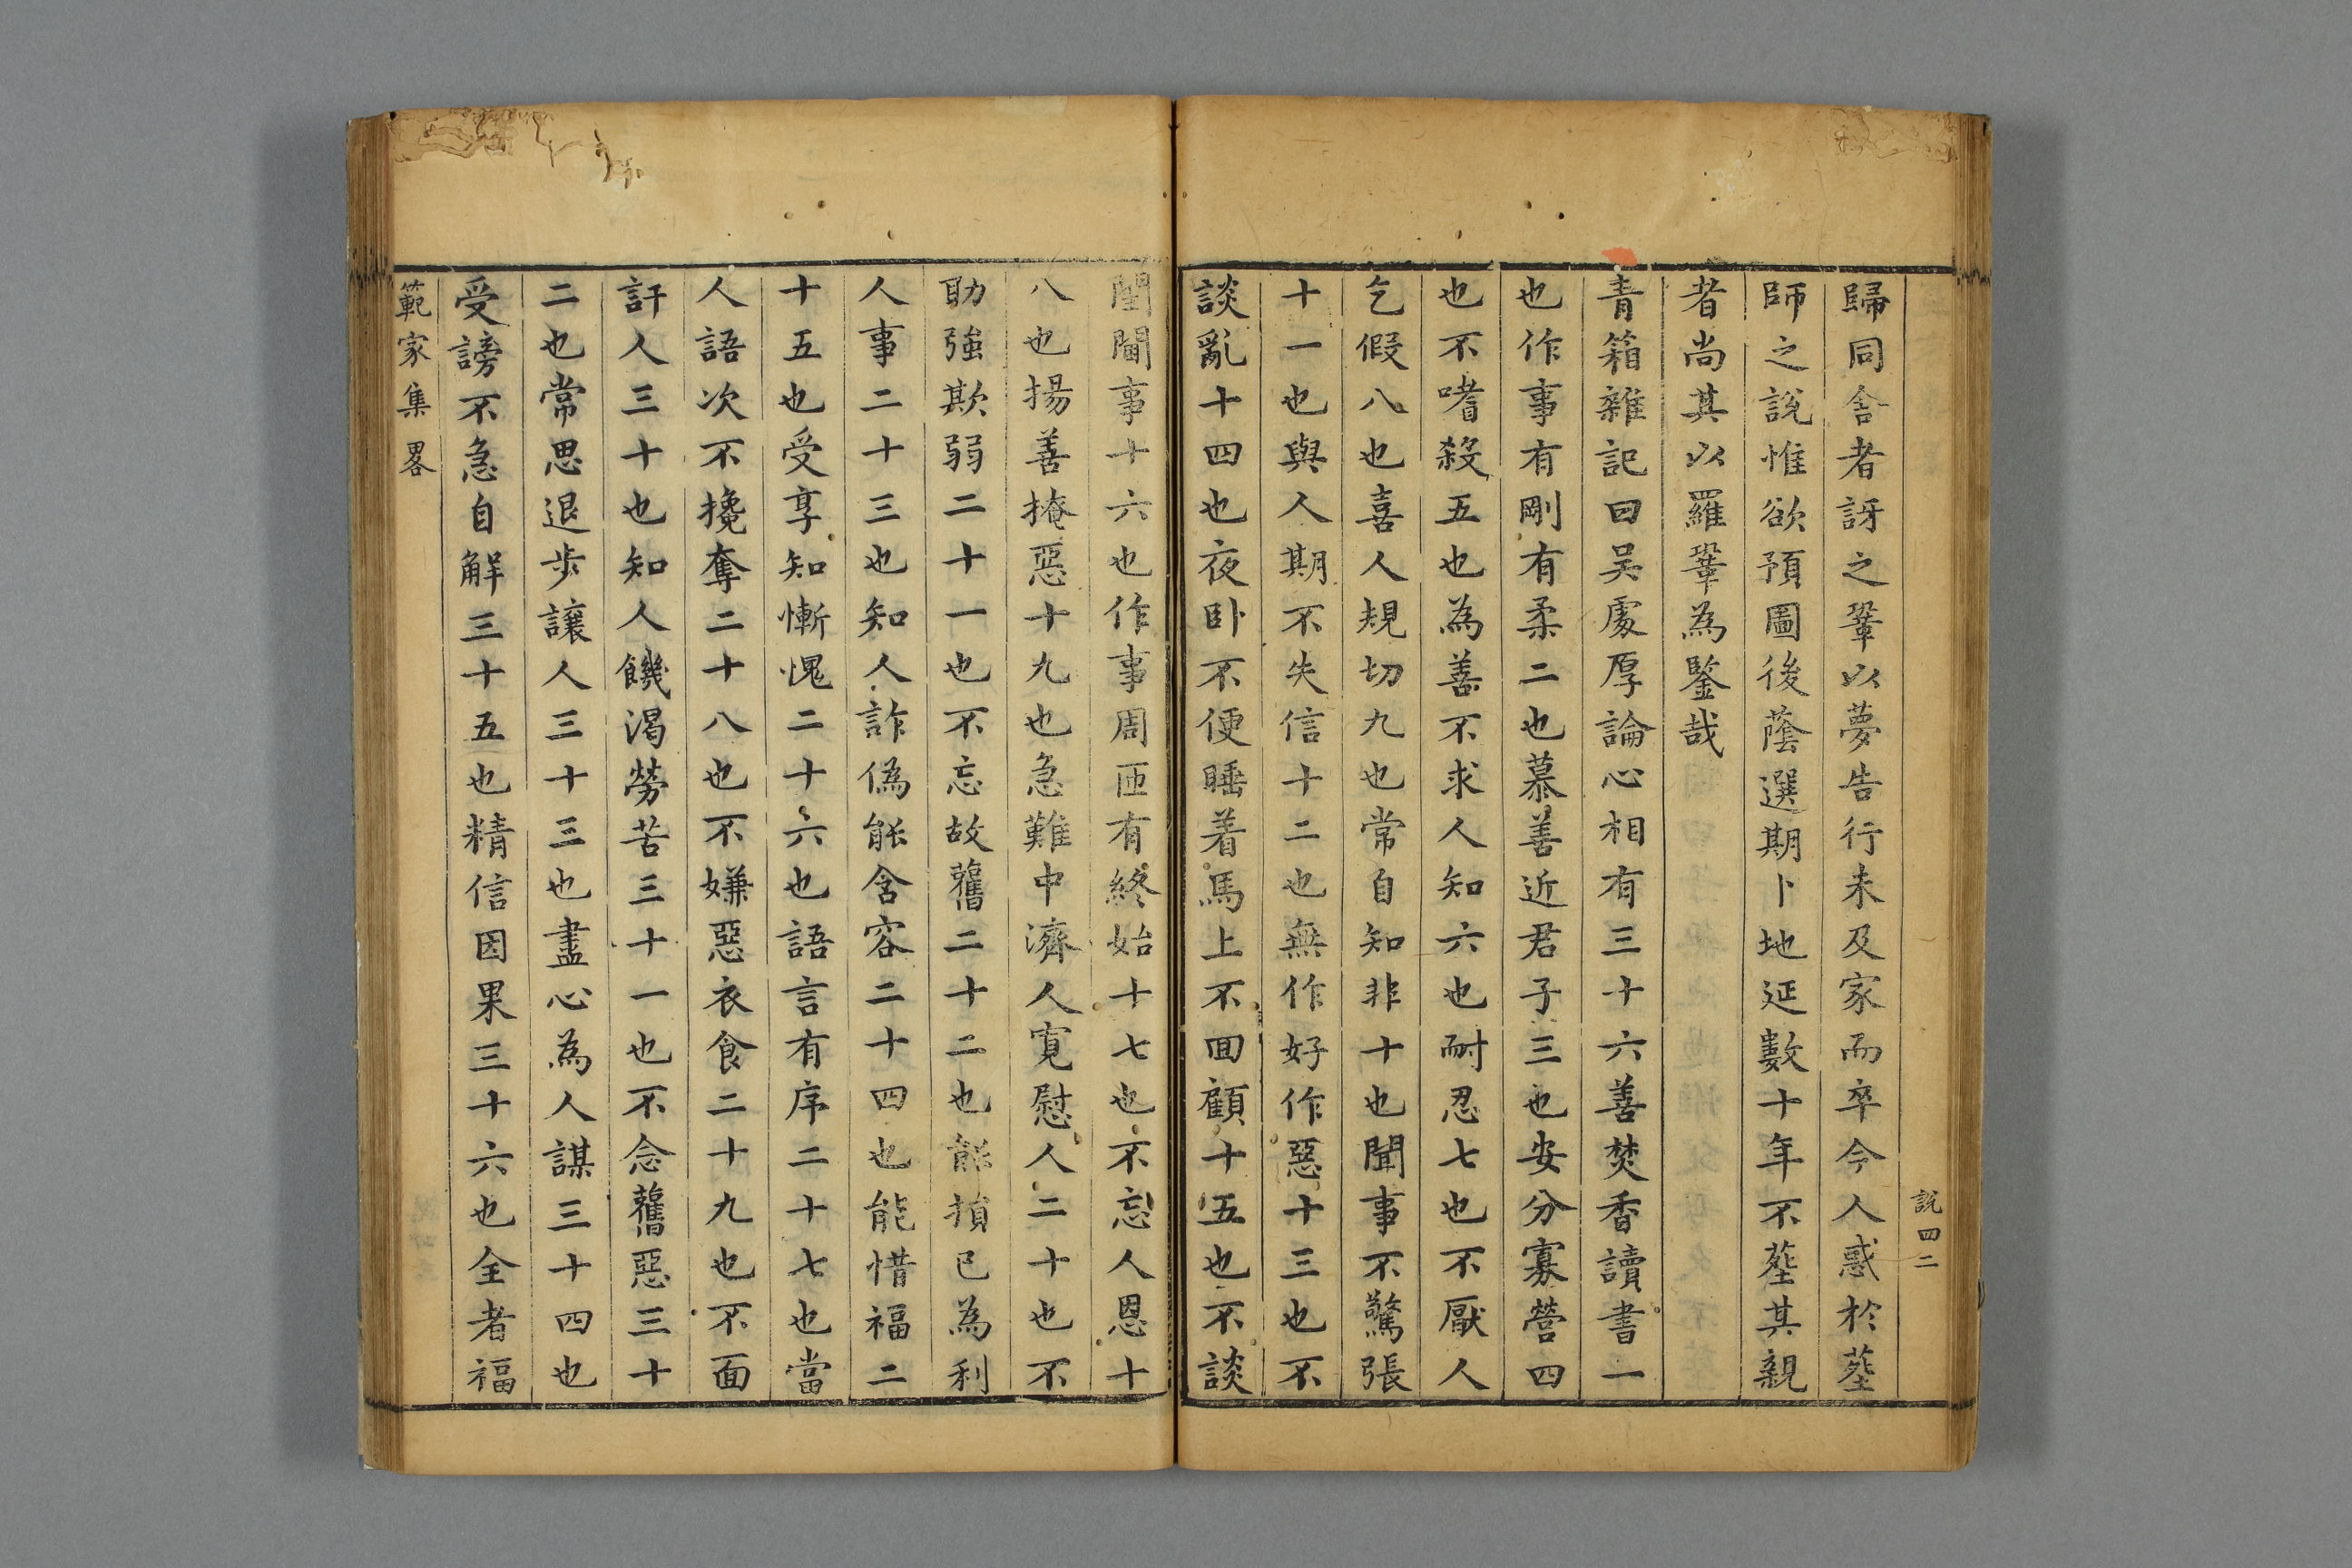 說四二
歸同舍者訝之鞏以夢告行未及家而卒今人惑於塟
師之說惟欲預圖後蔭選期卜地延數十年不塟其親
者尚其以羅鞏為鑒哉
青箱雜記曰吳處厚論心相有三十六善焚香讀書一
也作事有剛有柔二也慕善近君子三也安分寡營四
也不嗜殺五也為善不求人知六也耐忍七也不厭人
乞假八也喜人規切九也常自知非十也聞事不驚張
十一也與人期不失信十二也無作好作惡十三也不
談亂十四也夜卧不便睡着馬上不回顧十五也不談
閨閫事十六也作事周匝有終始十七也不忘人恩十
八也揚善掩惡十九也急難中濟人寬慰人二十也不
助強欺弱二十一也不忘故舊二十二也能損己為利
人事二十三也知人詐偽能含容二十四也能惜福二
十五也受享知慚愧二十六也語言有序二十七也當
人語次不攙奪二十八也不嫌惡衣食二十九也不面
訐人三十也知人饑渴勞苦三十一也不念舊惡三十
二也常思退步讓人三十三也盡心為人謀三十四也
受謗不急自解三十五也精信因果三十六也全者福
範家集畧